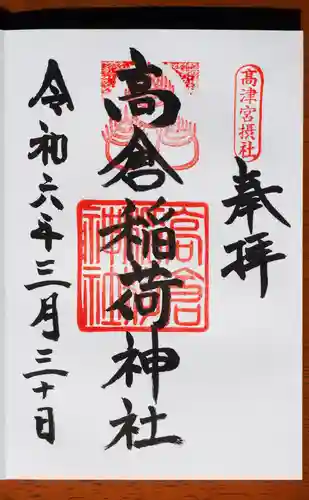 髙津宮摂社
奉拝
高倉稲荷神社
高倉
稲荷
神社
令和六年三月三十日